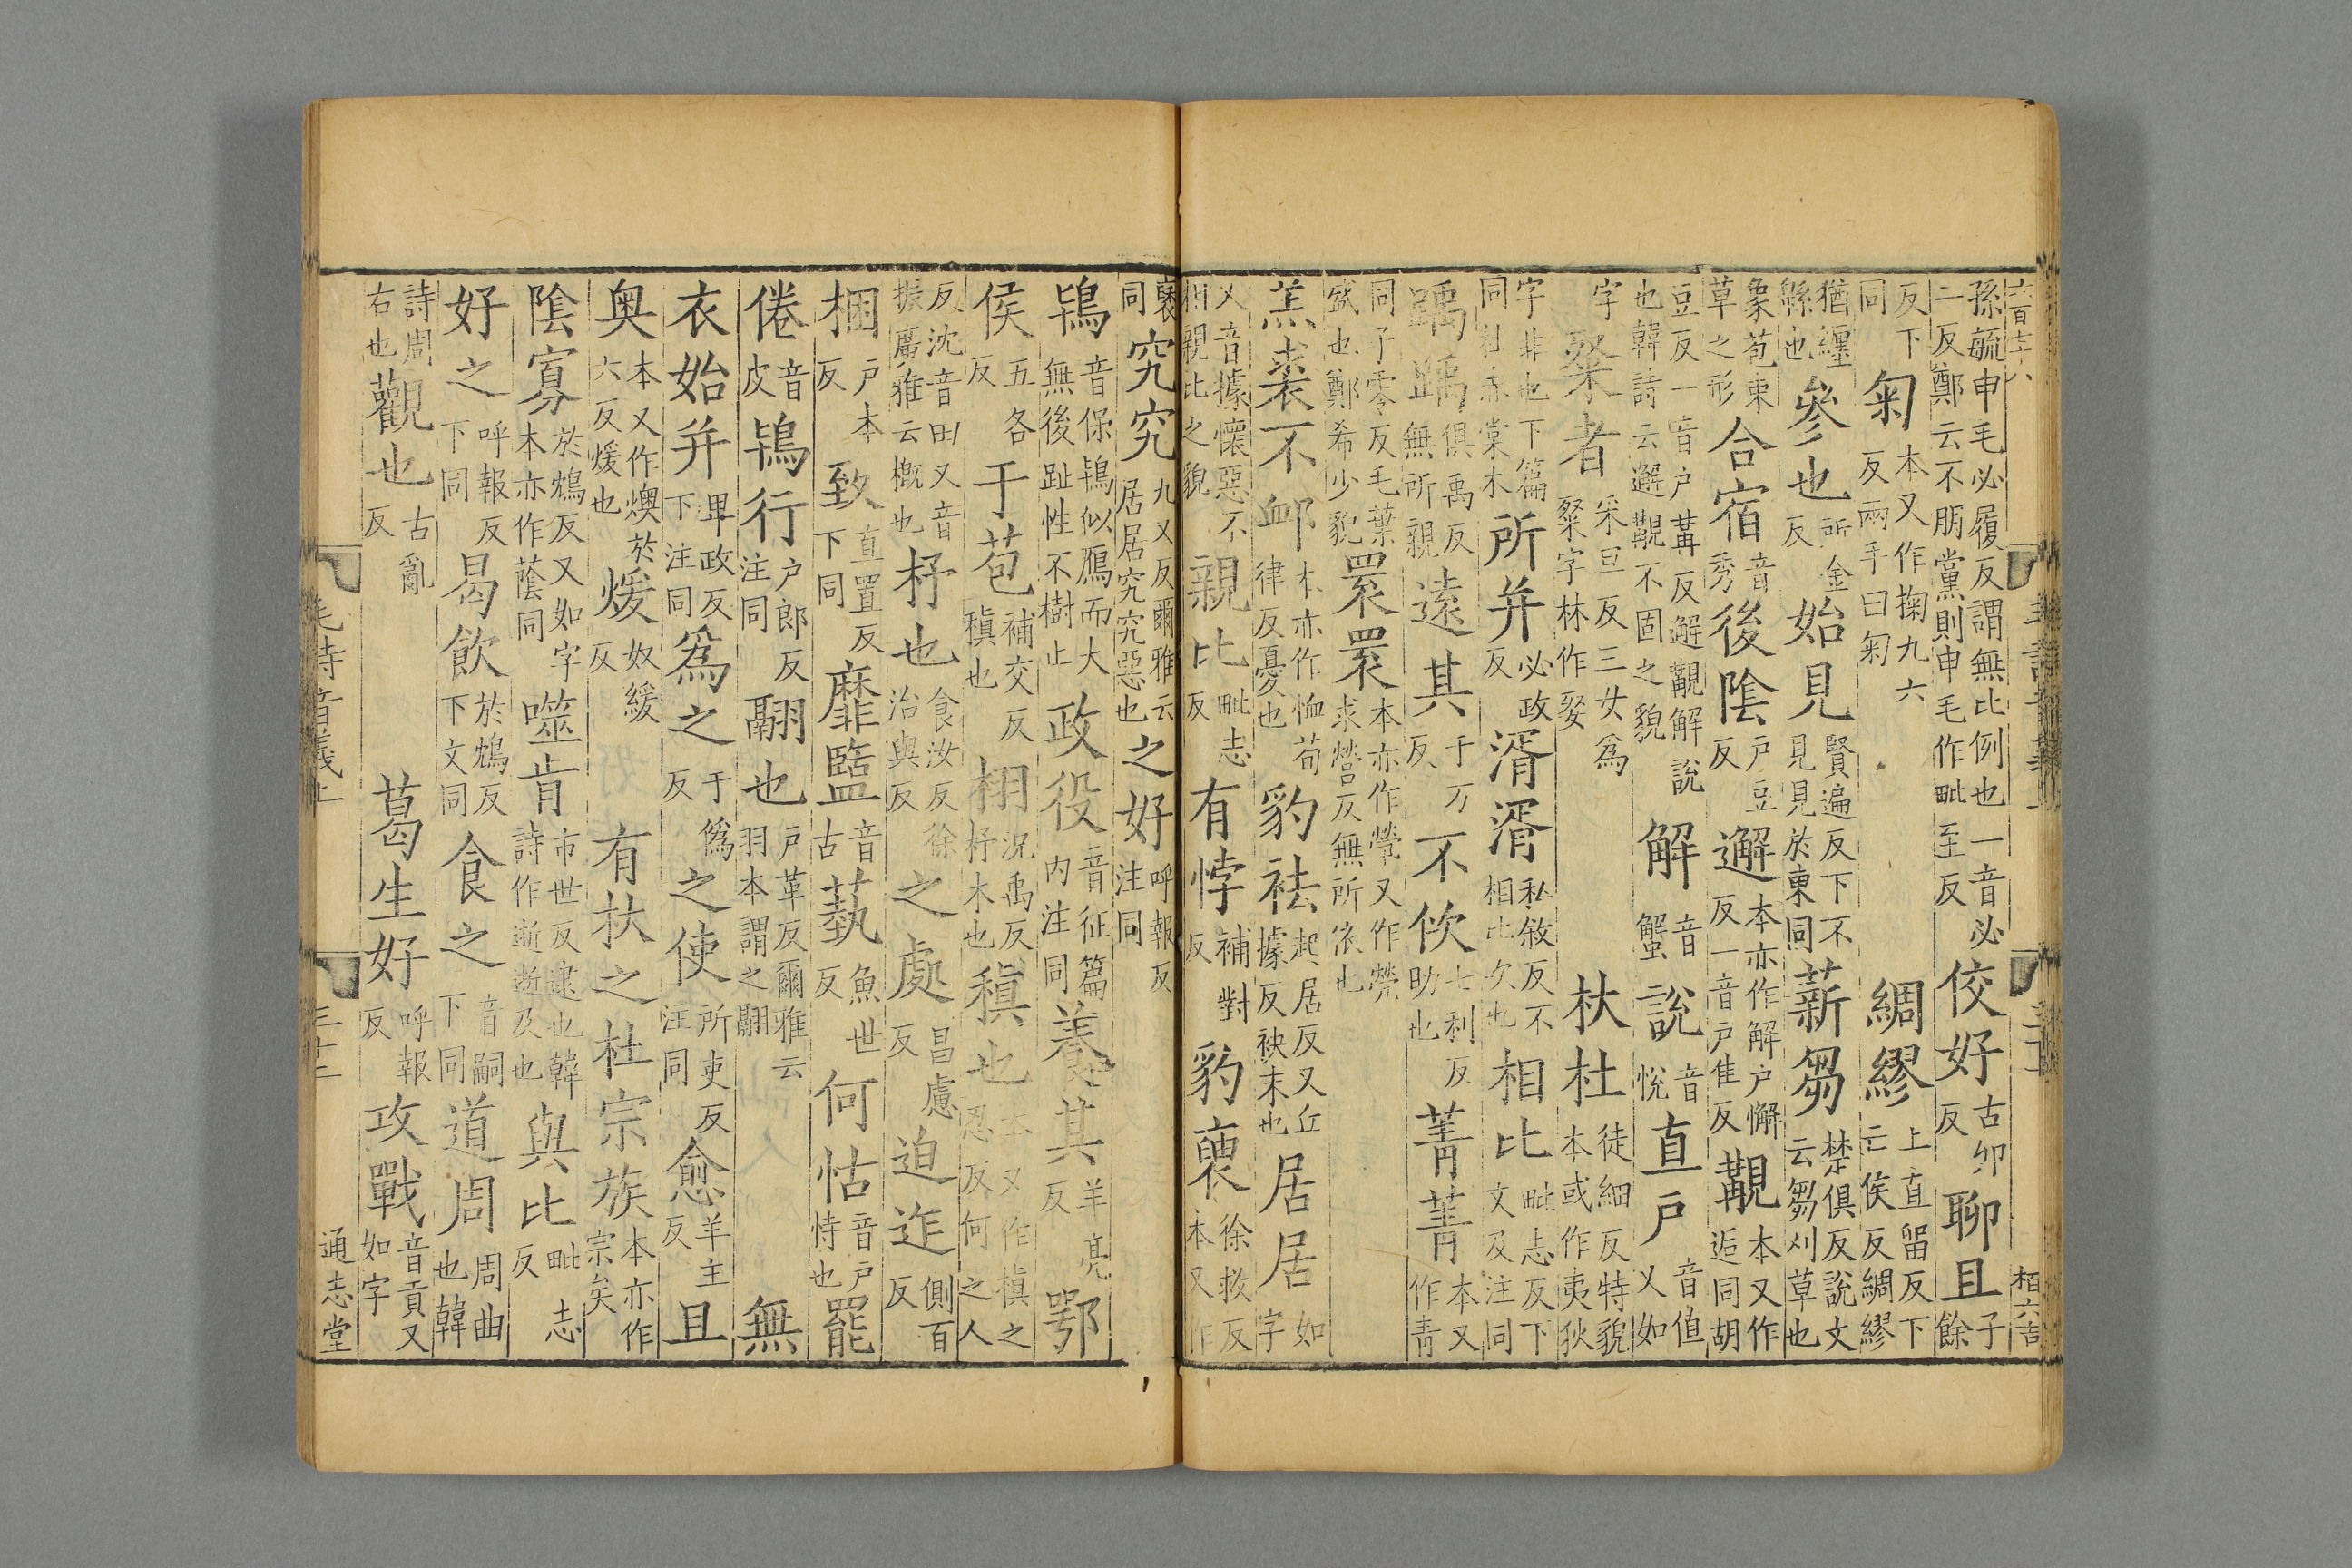 孫毓申毛必履反謂無比例也一音必二反鄭云不朋黨則申毛作毗至反佼好古卯反聊且子餘
反下同匊本又作掬九六反兩手曰匊綢繆上直留反下亡侯反綢繆
猶纏緜也參也所金反始見賢遍反下不見見於東同薪芻楚俱反說文云芻刈草也
象苞束草之形合宿音秀後陰戶豆反邂本亦作解戶懈反一音戶佳反覯本又作逅同胡
豆反一音戶冓反邂覯解說也韓詩云邂覯不固之貌解音蟹說音悅直戶音值又如
字粲者采旦反三女為粲字林作㛑杕杜徒細反特貌本或作夷狄
字非也下篇同杜赤棠木所并必政反湑湑私敘反不相比次也相比毗志反下文及注同
踽踽俱禹反無所親遠其于万反不佽七利反助也菁菁本又作青
同子零反毛葉盛也鄭希少貌睘睘本亦作煢又作嬛求營反無所依也
羔裘不卹本亦作恤荀律反憂也豹袪起居反又丘據反袂末也居居如字
又音據懷惡不相親比之貌親比毗志反有悖補對反豹褎徐救反本又作
褏同究究九又反爾雅云居居究究惡也之好呼報反注同
鴇音保鴇似鴈而大無後趾性不樹止政役音征篇內注同養其羊亮反鄂
侯五各反于苞補交反稹也栩況禹反杼木也稹也本又作槇之忍反何之人
反沈音田又音振廣雅云概也杼也食汝反徐治與反之處昌慮反迫迮側百反
梱戶本反致直置反下同靡盬音古蓺魚世反何怙音戶恃也罷
倦音皮鴇行戶郎反注同翮也戶革反爾雅云羽本謂之翮無
衣始并卑政反下注同為之于偽反之使所吏反注同愈羊主反且
奧本又作燠於六反煖也煖奴緩反有杕之杜宗族本亦作宗矣
陰寡於鴆反又如字本亦作蔭同噬肯市世反逮也韓詩作逝逝及也與比毗志反
好之呼報反下同曷飲於鴆反下文同食之音嗣下同道周周曲也韓
詩周右也觀也古亂反葛生好呼報反攻戰音貢又如字
毛詩音義上
三十二
通志堂